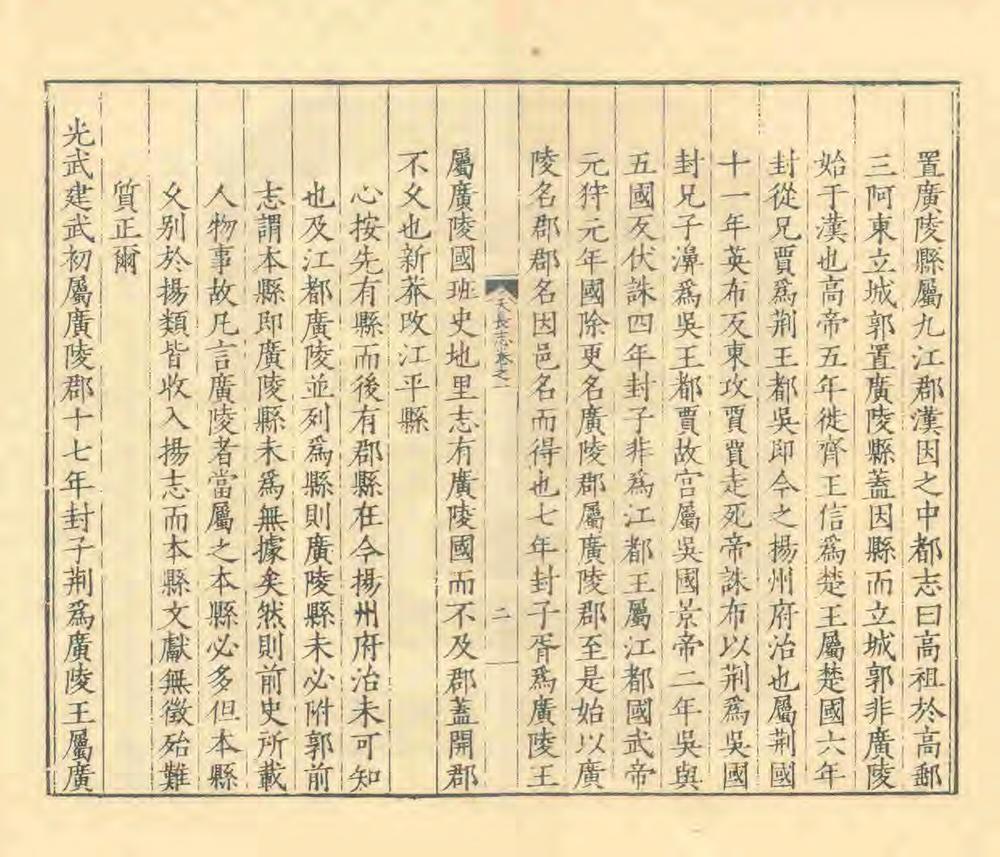 置廣陵縣屬九江郡漢因之中都志曰高祖於高郵
三阿東立城郭置廣陵縣蓋因縣而立城郭非廣陵
始于漢也高帝五年徙齊王信爲楚王屬楚國六年
封從兄賈爲荆王都吳即今之揚州府治也屬荆國
十一年英布反東攻賈賈走死帝誅布以荆爲吳國
封兄子濞爲吳王都賈故宫屬吳國景帝二年吳與
五國反伏誅四年封子非爲江都王屬江都國武帝
元狩元年國除更名廣陵郡屬廣陵郡至是始以廣
陵名郡郡名因邑名而得也七年封子胥爲廣陵王
天長志卷之一
二
屬廣陵國班史地里志有廣陵國而不及郡蓋開郡
不久也新莽改江平縣
心按先有縣而後有郡縣在今揚州府治未可知
也及江都廣陵並列爲縣則廣陵縣未必附郭前
志謂本縣即廣陵縣未爲無據矣然則前史所載
人物事故凡言廣陵者當屬之本縣必多但本縣
久别於揚類皆收入揚志而本縣文獻無徵殆難
質正爾
光武建武初屬廣陵郡十七年封子荆爲廣陵王屬廣